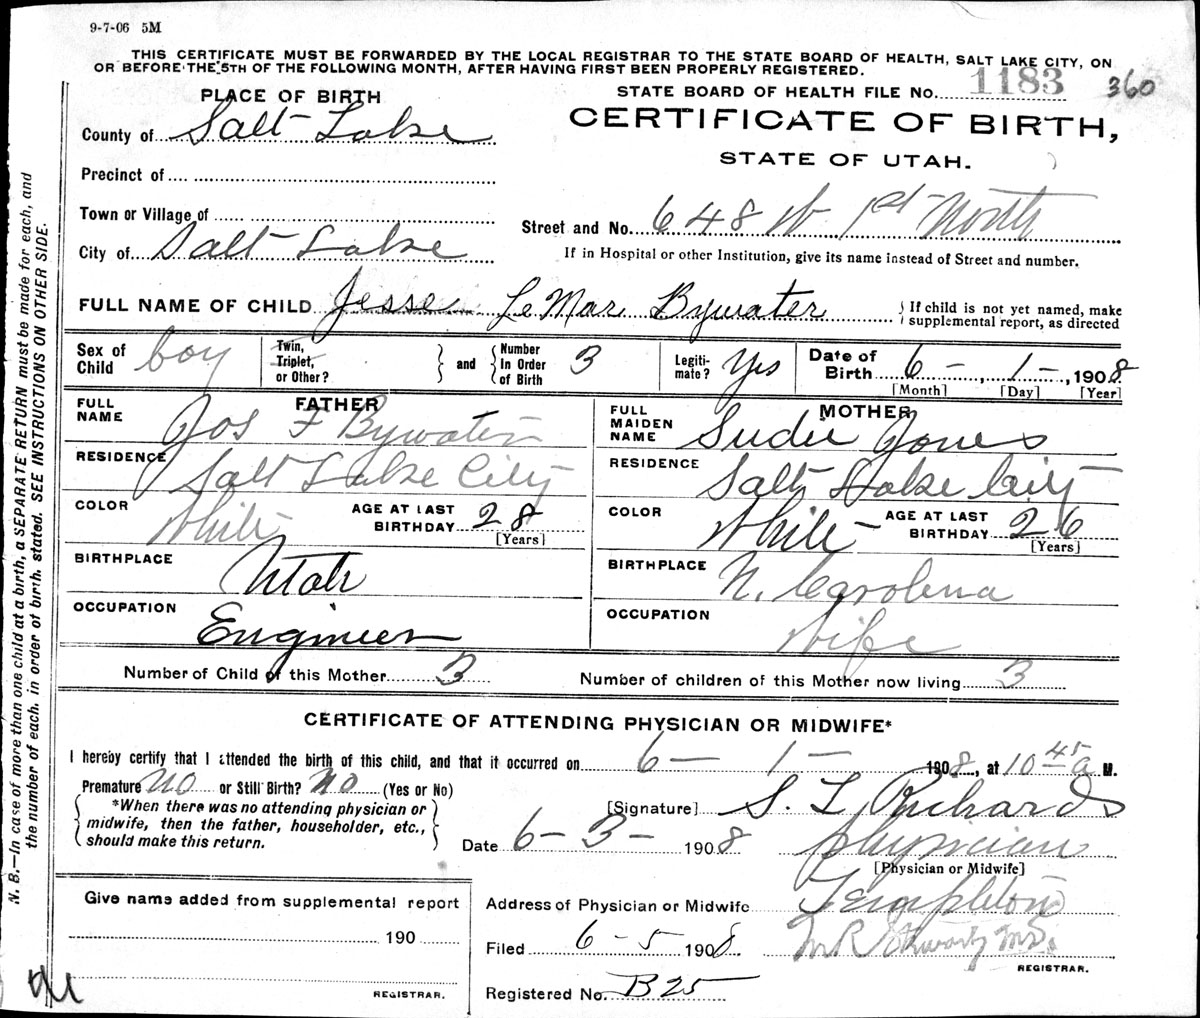 9-7-06 5M
THIS CERTIFICATE MUST BE FORWARDED BY THE LOCAL REGISTRAR TO THE STATE BOARD OF HEALTH, SALT LAKE CITY, ON
OR BEFORE THE 5TH OF THE FOLLOWING MONTH, AFTER HAVING FIRST BEEN PROPERLY REGISTERED.
STATE BOARD OF HEALTH FILE No. 1183 360
PLACE OF BIRTH
CERTIFICATE OF BIRTH,
STATE OF UTAH.
County of Salt Lake
Precinct of
Town or Village of
Street and No. 648 W 1st North
City of Salt Lake
If in Hospital or other Institution, give its name instead of Street and number.
FULL NAME OF CHILD Jesse LeMar Bywater
If child is not yet named, make
supplemental report, as directed
Sex of Child boy
Twin, Triplet, or Other?
and Number In Order of Birth 3
Legiti-mate? Yes
Date of Birth 6 - , 1 - , 1908
[Month] [Day] [Year]
FATHER
FULL NAME Jos F Bywater
RESIDENCE Salt Lake City
COLOR White AGE AT LAST BIRTHDAY 28
[Years]
BIRTHPLACE Utah
OCCUPATION Engineer
MOTHER
FULL MAIDEN NAME Sudie Jones
RESIDENCE Salt Lake City
COLOR White AGE AT LAST BIRTHDAY 26
[Years]
BIRTHPLACE N. Carolina
OCCUPATION Wife
Number of Child of this Mother 3 Number of children of this Mother now living 3
CERTIFICATE OF ATTENDING PHYSICIAN OR MIDWIFE*
I hereby certify that I attended the birth of this child, and that it occurred on 6 - 1 - 1908, at 10 45 a M.
Premature No or Still Birth? No (Yes or No)
*When there was no attending physician or
midwife, then the father, householder, etc.,
should make this return.
[Signature] S. L Richards
Date 6 - 3 - 1908 physician
[Physician or Midwife]
Give name added from supplemental report
190
REGISTRAR.
Address of Physician or Midwife Templeton
Filed 6 - 5 1908 M.D.
REGISTRAR.
Registered No. B25
N. B.—In case of more than one child at a birth, a SEPARATE RETURN must be made for each, and
the number of each, in order of birth, stated. SEE INSTRUCTIONS ON OTHER SIDE.